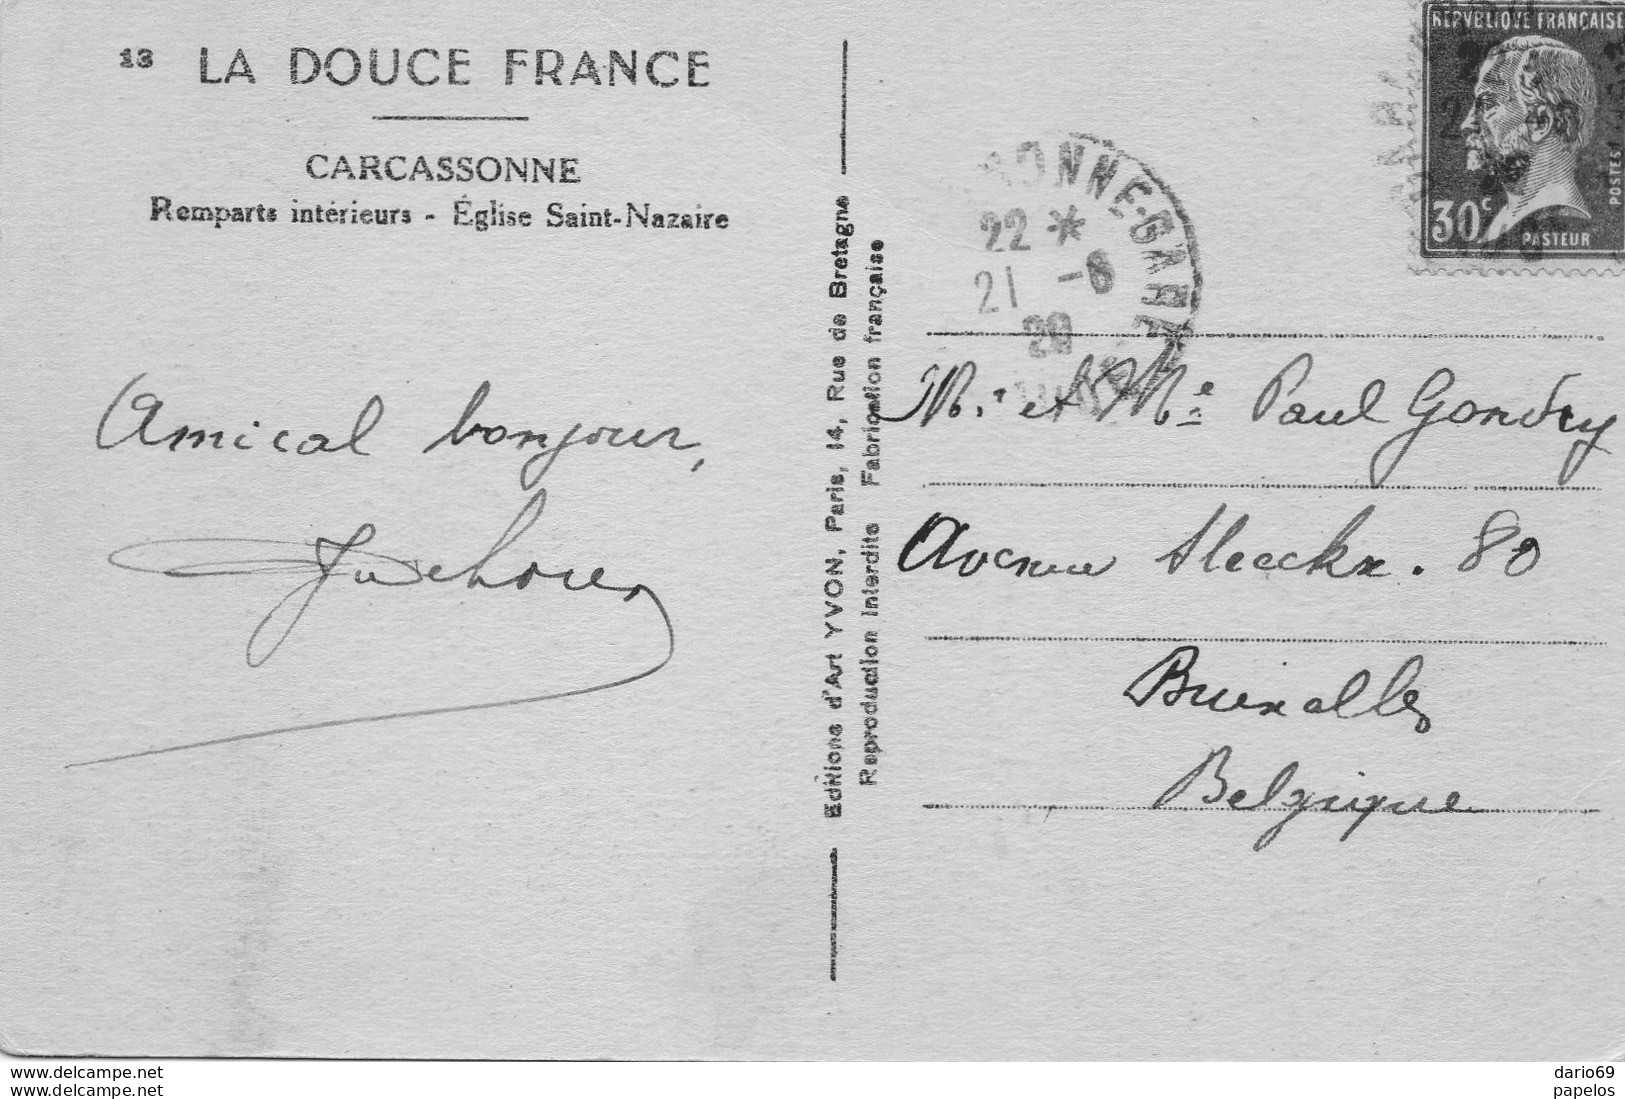 13 LA DOUCE FRANCE
CARCASSONNE
Remparts intérieurs - Église Saint-Nazaire
Amical bonjour,
Editions d'Art YVON, Paris, 14, Rue de Bretagne
Reproduction Interdite Fabrication française
REPVBLIQVE FRANÇAISE
POSTES
30c
PASTEUR
ONNE-GARE
22 *
21 -6
M. et Me Paul Gondry
Avenue Sleeckx. 80
Bruxelles
Belgique
www.delcampe.net
www.delcampe.net
dario69
papelos